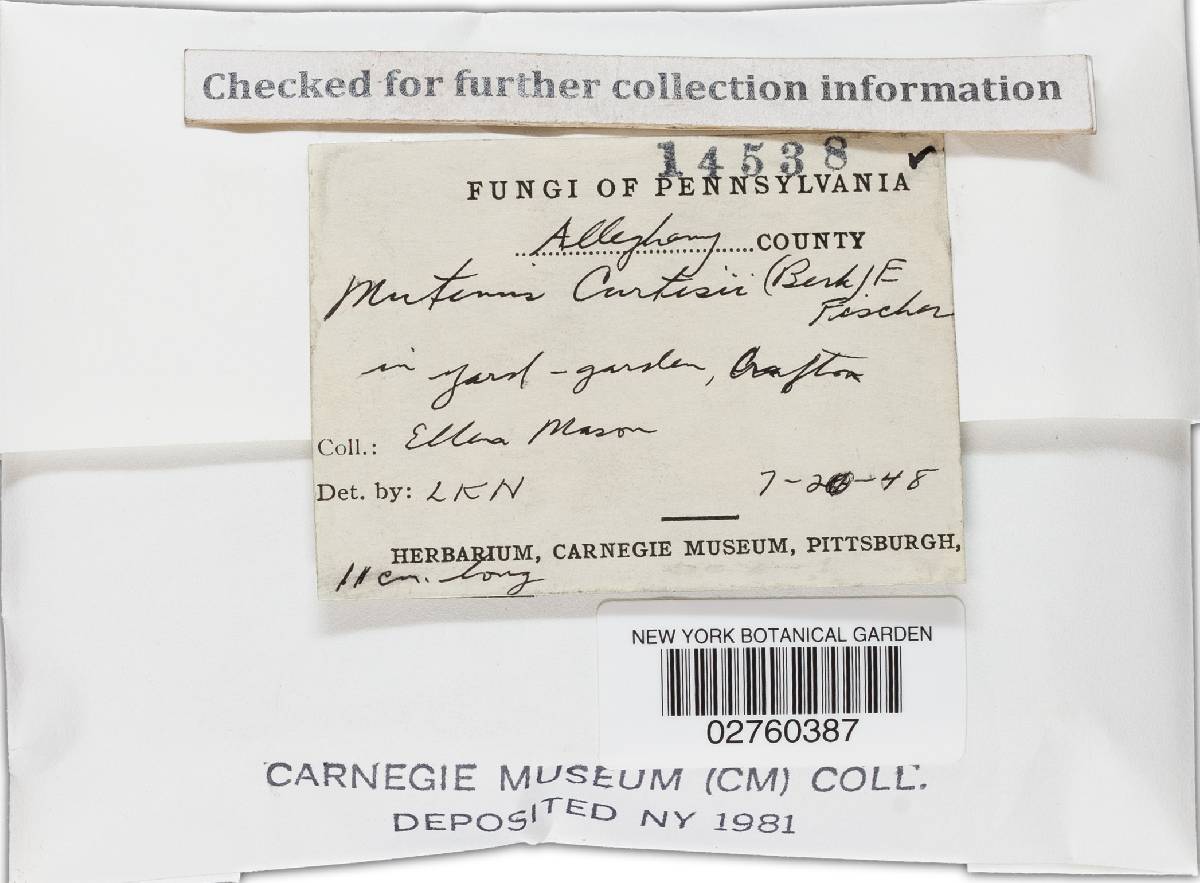 Checked for further collection information
14538 ✓
FUNGI OF PENNSYLVANIA
Allegheny COUNTY
Mutinus Curtisii (Berk) E
Fischer
in yard - garden, Crafton
Coll.: Ellena Mason
Det. by: LKH 7-20-48
HERBARIUM, CARNEGIE MUSEUM, PITTSBURGH,
11 cm. long
NEW YORK BOTANICAL GARDEN
02760387
CARNEGIE MUSEUM (CM) COLL.
DEPOSITED NY 1981